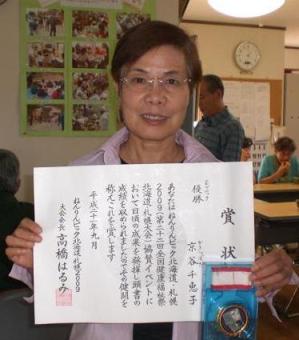 賞状
優勝
京谷千恵子
あなたはねんりんピック北海道、札幌
2009(第二十二回全国健康福祉祭
北海道、札幌大会)協賛イベントに
おいて日頃の成果を発揮し頭書の
成績を収められましたのでその健闘を
称えこれを賞します
平成二十一年九月
ねんりんピック北海道、札幌2009
大会会長 高橋はるみ